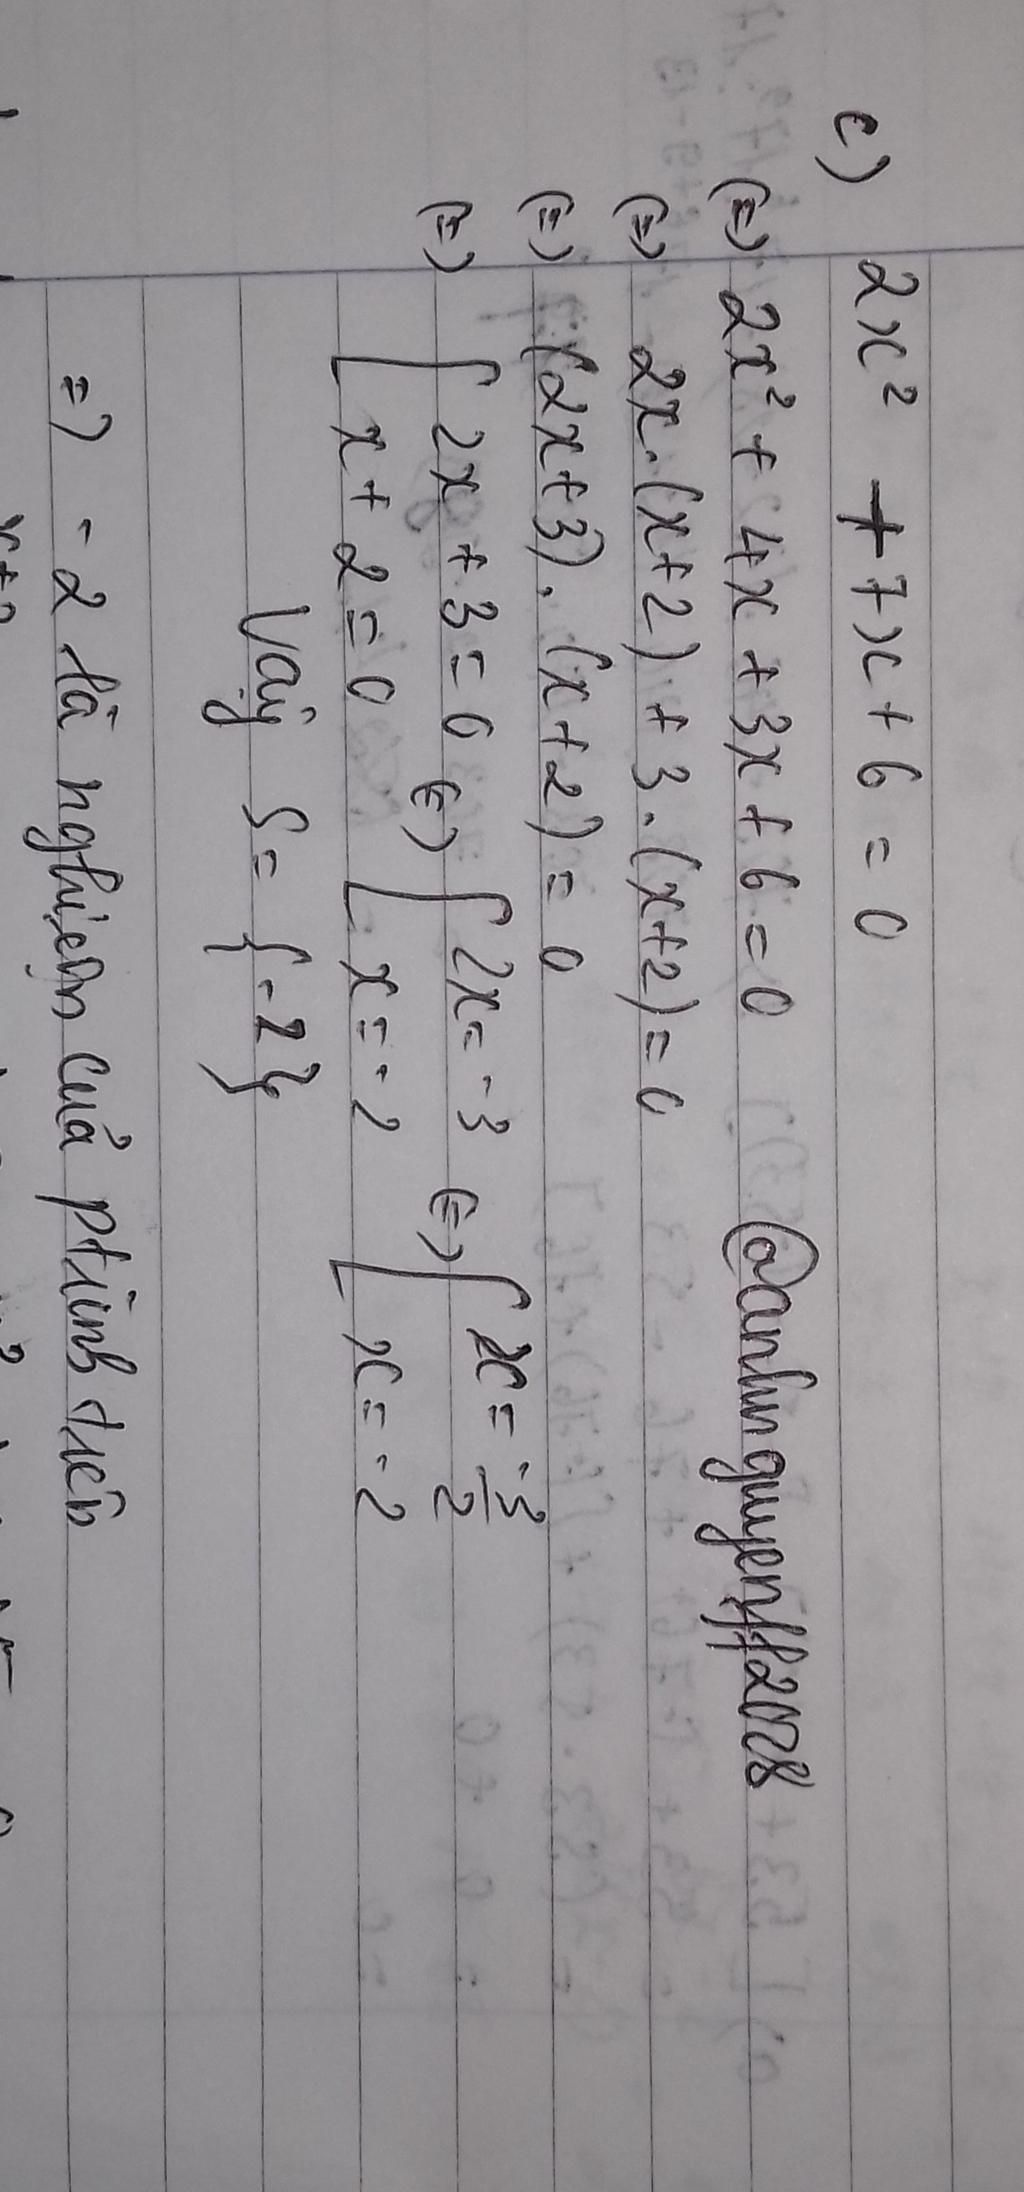 c) 2x² + 7x + 6 = 0
(=) 2x² + 4x + 3x + 6 = 0
@anhnguyenff2028
(=) 2x.(x+2) + 3.(x+2) = 0
(=) (2x+3).(x+2) = 0
(=) [ 2x + 3 = 0 (=) [ 2x = -3 (=) [ x = -3/2
x + 2 = 0 x = -2 x = -2
Vậy S = {-2}
=) -2 là nghiệm của ptrình trên